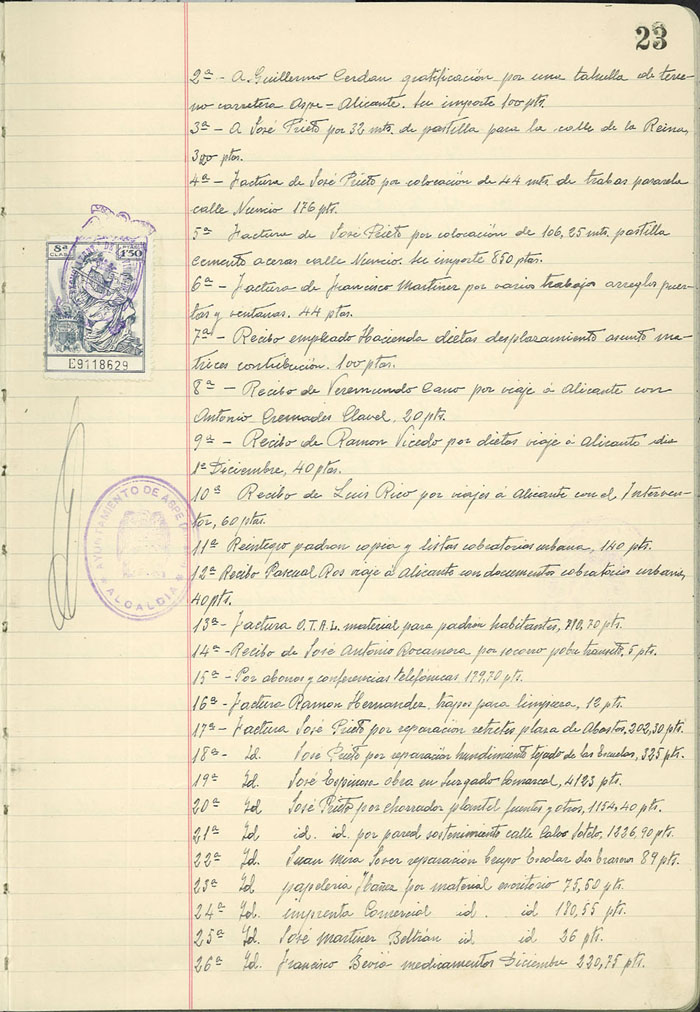 23
2ª - A Guillermo Cerdan gratificación por una tahulla de terre-
no carretera Aspe - Alicante. Su importe 100 pts.
3ª - A José Prieto por 32 mts. de pastilla para la calle de la Reina,
320 ptas.
4ª - Factura de José Prieto por colocación de 44 mts. de trabas para la
calle Nuncio 176 pts.
5ª Factura de José Prieto por colocación de 106,25 mts. pastilla
cemento aceras calle Nuncio. Su importe 850 ptas.
6ª - Factura de Francisco Martinez por varios trabajos arreglos puer-
tas y ventanas. 44 ptas.
7ª - Recibo empleado Hacienda dietas desplazamiento asunto ma-
trices contribución. 100 ptas.
8ª - Recibo de Veremundo Cano por viaje á Alicante con
Antonio Cremades Clavel, 20 pts.
9ª - Recibo de Ramon Vicedo por dietas viaje á Alicante dia
1º Diciembre, 40 ptas.
10ª Recibo de Luis Rico por viajes á Alicante con el Interven-
tor, 60 ptas.
11ª Reintegro padron copia y listas cobratorias urbana, 140 pts.
12ª Recibo Pascual Ros viaje á Alicante con documentos cobratorio urbana,
40 pts.
13ª - Factura O.T.A.L. material para padron habitantes, 710,70 pts.
14ª - Recibo de José Antonio Rocamora por socorro pobre transito, 5 pts.
15ª - Por abonos y conferencias telefónicas, 179,70 pts.
16ª - Factura Ramon Hernandez trapos para limpieza, 12 pts.
17ª - Factura José Prieto por reparación retretes plaza de Abastos, 202,30 pts.
18ª - Id. José Prieto por reparación hundimiento tejado de las Escuelas, 325 pts.
19ª Id. José Espinosa obra en Juzgado Comarcal, 4123 pts.
20ª Id José Prieto por chorrador plantel fuentes y otros, 1154,40 pts.
21ª Id. id. id. por pared sostenimiento calle Calvo Sotelo, 1226,90 pts.
22ª Id. Juan Mira Sover reparación Grupo Escolar dos brazos 89 pts.
23ª Id papeleria Ibañez por material escritorio 75,50 pts.
24ª Id. imprenta Comercial id. id 180,55 pts.
25ª Id. José Martinez Beltrán id id 26 pts.
26ª Id. Francisco Beviá medicamentos Diciembre 220,75 pts.
8ª CLASE
PESETAS 1'50
E9118629
AYUNTAMIENTO DE ASPE
ALCALDIA